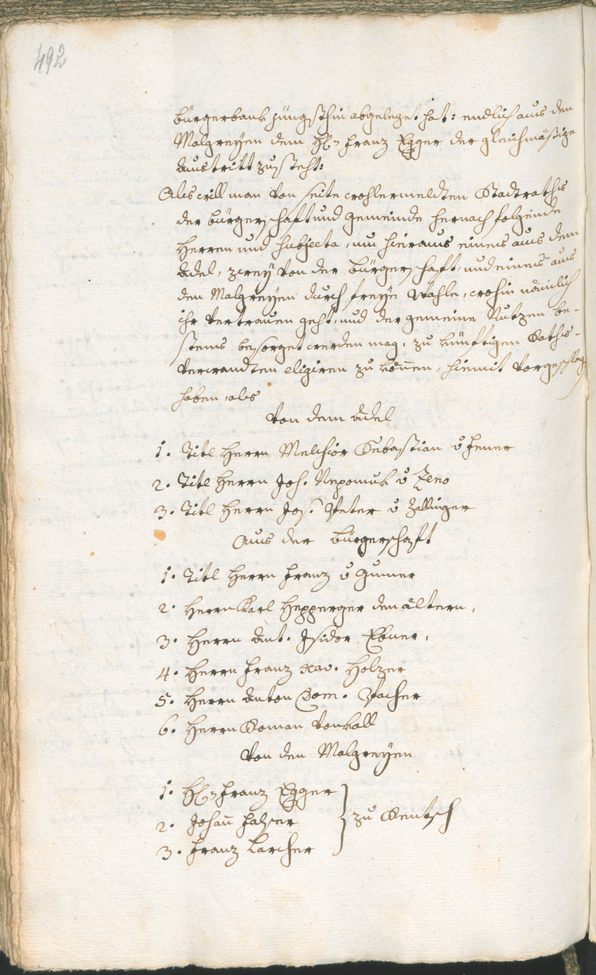 492
bürgerbank jüngsthin abgeleget hat: endlich aus den
Malgreyen dem H: Franz Egger der gleichmäßige
Austritt zustehet:
Als will man von seite wohlermeldten Stadtraths
der bürgerschaft und gemeinde hernach folgende
Herren und Subjecta, um hieraus einen aus dem
Adel, zwey von der bürgerschaft, und einen aus
den Malgreyen durch freye Wahle, wohin nämlich
ihr Vertrauen geht, und der gemeine Nutzen be-
stens besorget werden mag, zu künftigen Raths-
verwandten eligiren zu können, hiemit vorgeschlagen
haben, als
Von dem Adel
1. Titl Herrn Melchior Sebastian v Jenner
2. Titl Herrn Joh. Nepomuk v Zeno
3. Titl Herrn Jos. Peter v Zallinger
Aus der bürgerschaft
1. Titl Herrn Franz v Gumer
2. Herrn Karl Hepperger den ältern,
3. Herrn Ant. Isidor Ebner,
4. Herrn Franz Xav. Holzer
5. Herrn Anton Dom. Pacher
6. Herrn Roman Vonkall
Von den Malgreyen
1. H: Franz Egger
2. Johan Falser } zu Rentsch
3. Franz Larcher